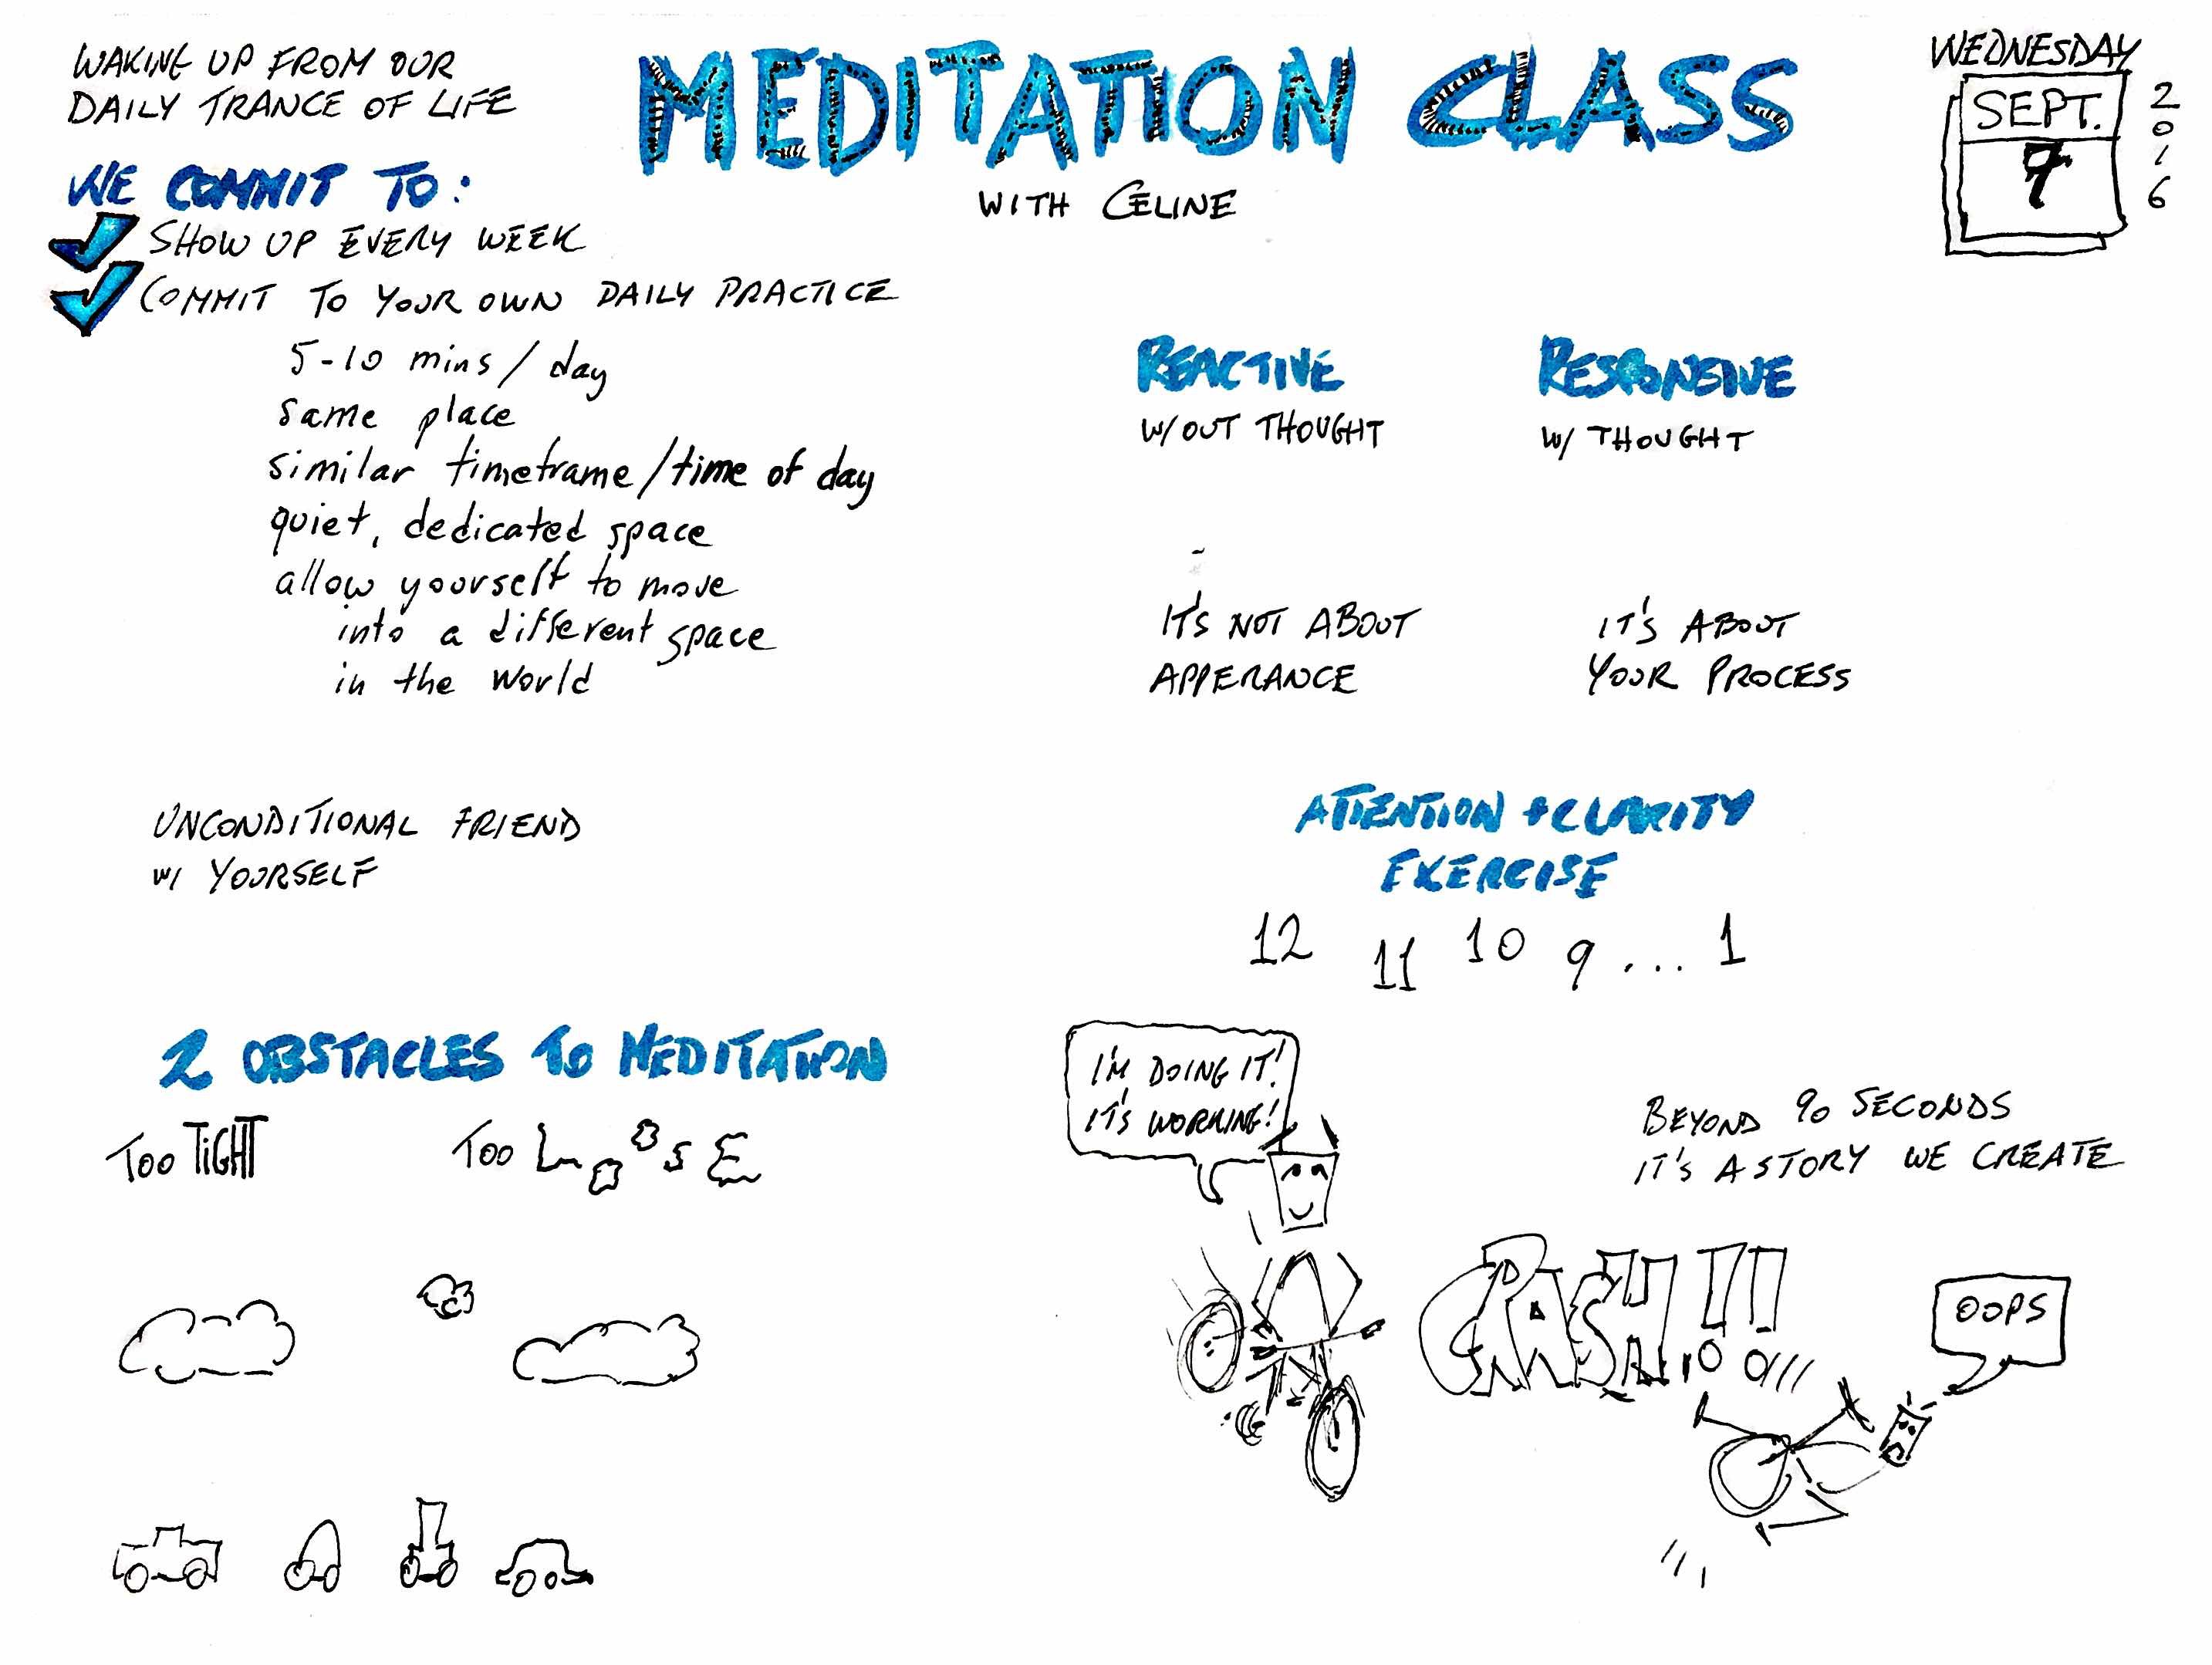 WAKING UP FROM OUR
DAILY TRANCE OF LIFE
MEDITATION CLASS
WITH CELINE
WEDNESDAY
SEPT.
7
2016
WE COMMIT TO:
SHOW UP EVERY WEEK
COMMIT TO YOUR OWN DAILY PRACTICE
5-10 mins/day
same place
similar timeframe/time of day
quiet, dedicated space
allow yourself to move
into a different space
in the world
REACTIVE
W/OUT THOUGHT
RESPONSIVE
W/ THOUGHT
IT'S NOT ABOUT
APPERANCE
IT'S ABOUT
YOUR PROCESS
UNCONDITIONAL FRIEND
W/ YOURSELF
ATTENTION + CLARITY
EXERCISE
12 11 10 9 ... 1
2 OBSTACLES TO MEDITATION
TOO TIGHT
TOO LOOSE
I'M DOING IT!
IT'S WORKING!
BEYOND 90 SECONDS
IT'S A STORY WE CREATE
CRASH!!
OOPS